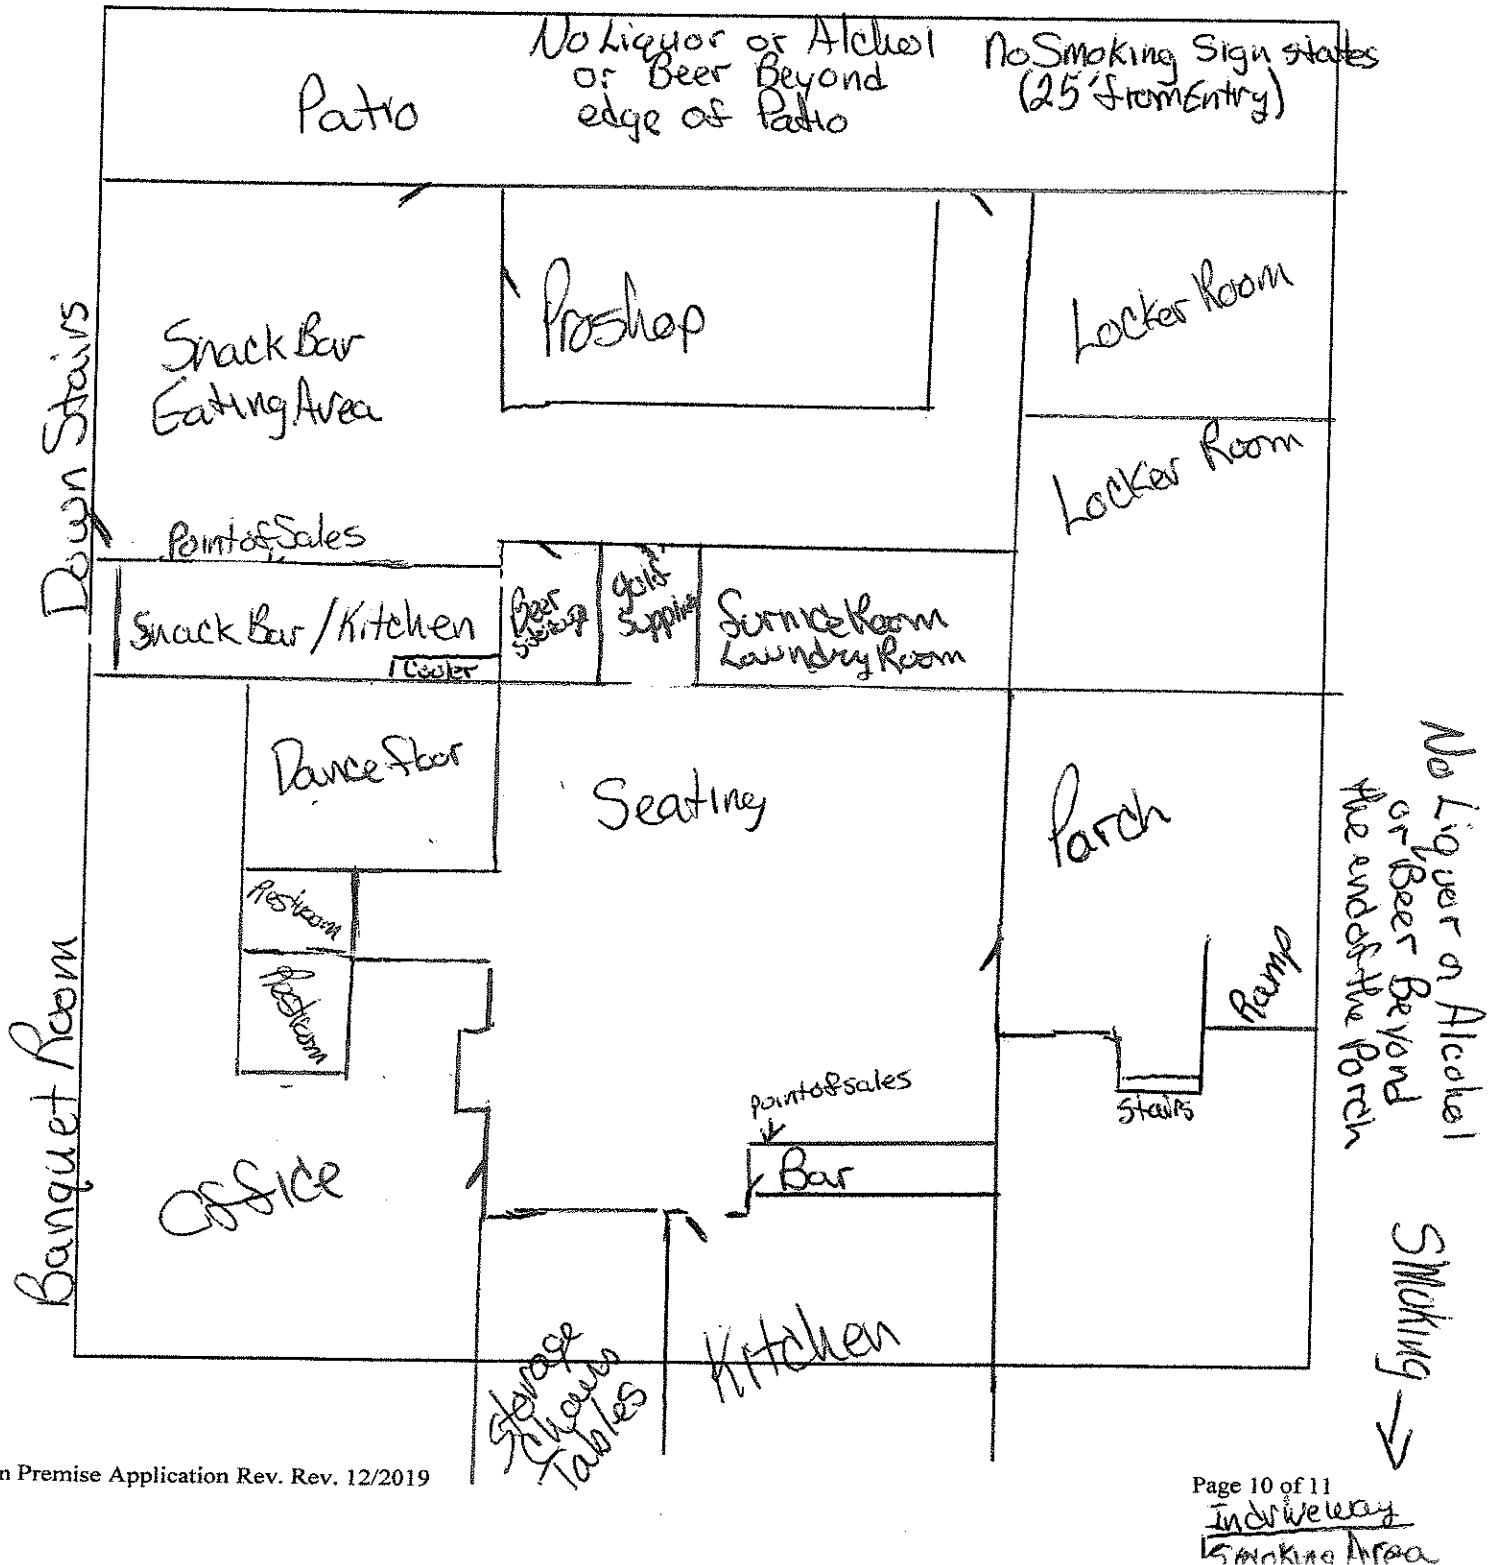 No Liquor or Alchol
or Beer Beyond
edge of Patio
No Smoking Sign states
(25' from Entry)
Patio
Proshop
Locker Room
Snack Bar
Eating Area
Down Stairs
Locker Room
Point of Sales
Snack Bar/Kitchen
Cooler
Beer
golf
supplies
Furnice Room
Laundry Room
Dance floor
Seating
Porch
No Liquor or Alcohol
or Beer Beyond
the end of the Porch
Restroom
Restroom
Ramp
Banquet Room
point of sales
Stairs
Bar
Office
Smoking
Kitchen
Storage
Chairs
Tables
n Premise Application Rev. Rev. 12/2019
Page 10 of 11
In driveway
Smoking Area